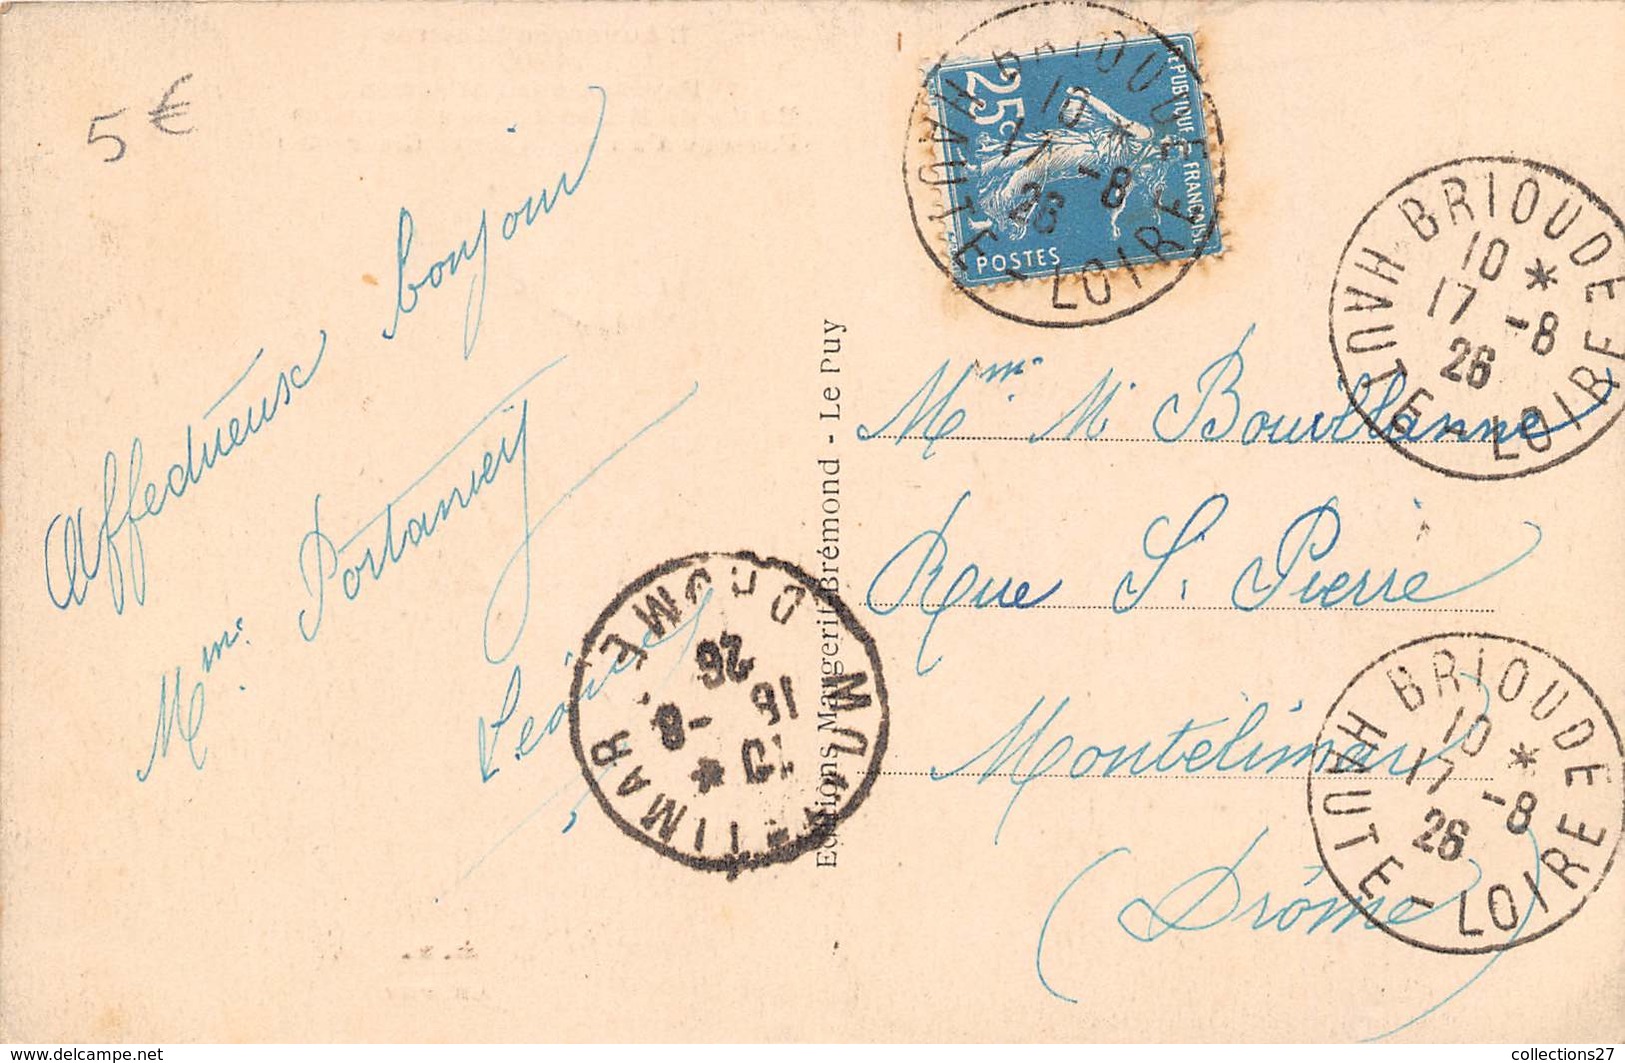 5 €
Affectueux bonjour
Mme Portanier
Editions Margerit-Brémond - Le Puy
REPUBLIQUE FRANÇAISE
25c
POSTES
BRIOUDE
10 *
17 -8
26
HAUTE-LOIRE
BRIOUDE
10 *
17 -8
26
HAUTE-LOIRE
Mme M
Rue St Pierre
Montélimar
(Drôme)
BRIOUDE
10 *
17 -8
26
HAUTE-LOIRE
DROME
10 *
18 -8
26
www.delcampe.net
collections27